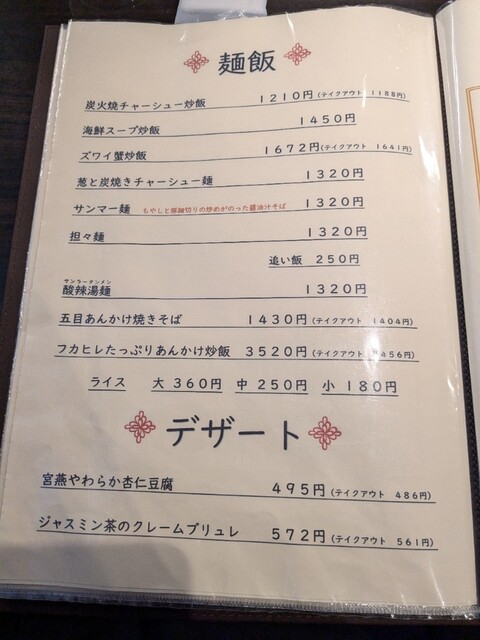 麺飯
炭火焼チャーシュー炒飯 1210円(テイクアウト 1188円)
海鮮スープ炒飯 1450円
ズワイ蟹炒飯 1672円(テイクアウト 1641円)
葱と炭焼きチャーシュー麺 1320円
サンマー麺 もやしと豚細切りの炒めがのった醤油汁そば 1320円
担々麺 1320円
追い飯 250円
サンラータンメン
酸辣湯麺 1320円
五目あんかけ焼きそば 1430円(テイクアウト 1404円)
フカヒレたっぷりあんかけ炒飯 3520円(テイクアウト 3456円)
ライス 大 360円 中 250円 小 180円
デザート
宮燕やわらか杏仁豆腐 495円(テイクアウト 486円)
ジャスミン茶のクレームブリュレ 572円(テイクアウト 561円)